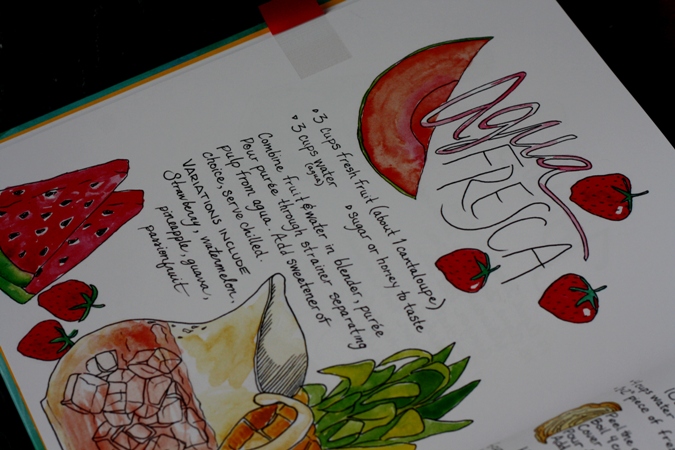 Agua
FRESCA
° 3 cups fresh fruit (about 1 cantaloupe)
° 3 cups water ° sugar or honey to taste
(agua)
Combine fruit & water in blender, purée
Pour purée through strainer separating
pulp from agua. Add sweetener of
choice, serve chilled.
VARIATIONS INCLUDE
Strawberry, watermelon,
pineapple, guava,
passionfruit
cups water
piece of
Peel the
Boil 4 c
Pour
cover
Add